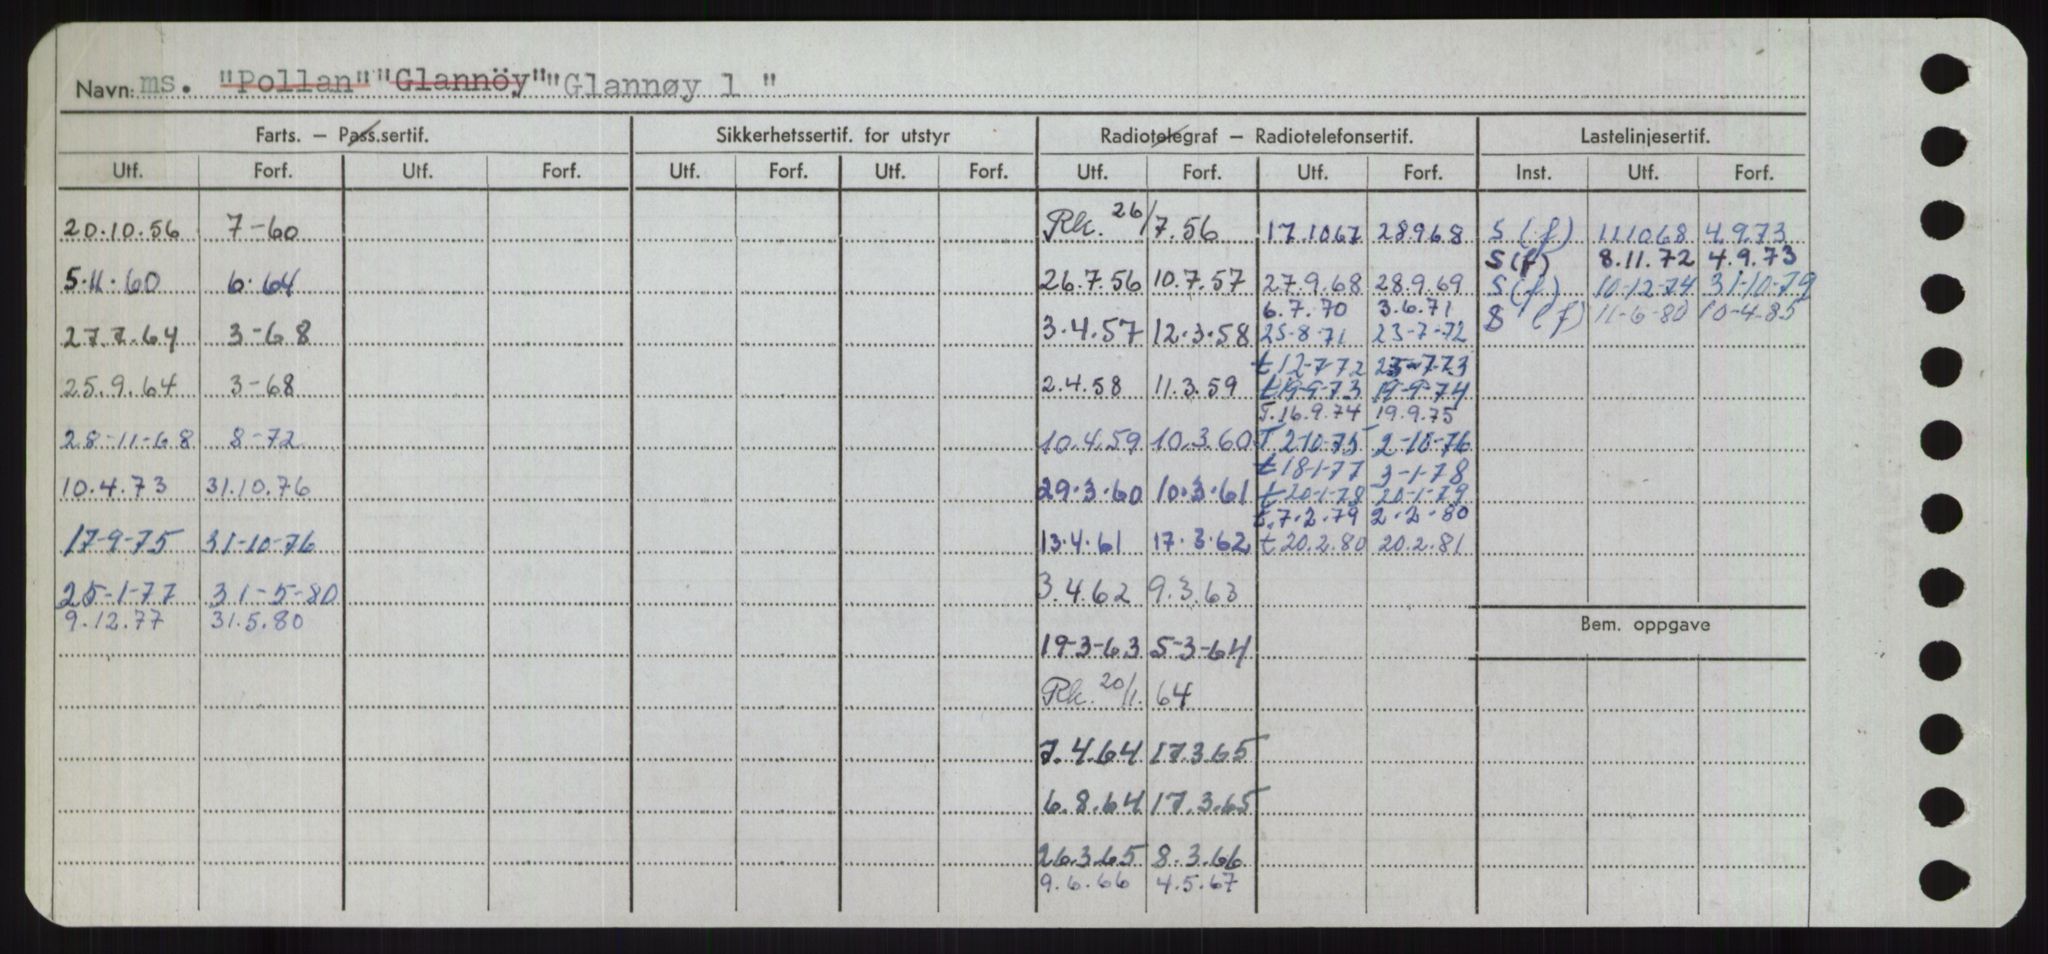 Navn: ms. "Pollan" "Glannöy" "Glannøy 1 "
Farts. — Pass.sertif. Sikkerhetssertif. for utstyr Radiotelegraf — Radiotelefonsertif. Lastelinjesertif.
Utf. Forf. Utf. Forf. Utf. Forf. Utf. Forf. Utf. Forf. Utf. Forf. Inst. Utf. Forf.
20.10.56 7-60 Rk. 26/7.56 17.10.67 28.9.68 S (f) 11.10.68 4.9.73
S(f) 8.11.72 4.9.73
5.11.60 6.64 26.7.56 10.7.57 27.9.68 28.9.69 S(f) 10-12-74 31-10-79
6.7.70 3.6.71 S (f) 11-6-80 10-4-85
27.7.64 3-68 3.4.57 12.3.58 25-8-71 23-7-72
t 12-7-72 23-7-73
25.9.64 3-68 2.4.58 11.3.59 t 19-9-73 19-9-74
T. 16.9.74 19.9.75
28-11-68 8-72 10.4.59 10.3.60 T. 2-10-75 2-10-76
t 18-1-77 3-1-78
10.4.73 31.10.76 29.3.60 10.3.61 t 20-1-78 20-1-79
t. 7.2.79 2.2.80
17-9-75 31-10-76 13.4.61 17.3.62 t 20.2.80 20.2.81
25-1-77 31-5-80 3.4.62 9.3.63
9.12.77 31.5.80 Bem. oppgave
19-3-63 5-3-64
Rk. 20/1. 64
7.4.64 17.3.65
6.8.64 17.3.65
26.3.65 8.3.66
9.6.66 4.5.67